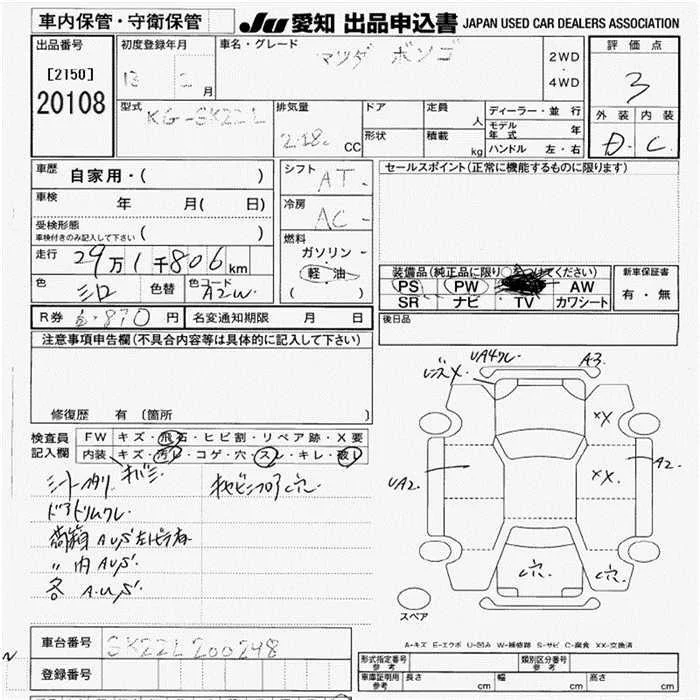 車内保管・守衛保管
JU 愛知 出品申込書 JAPAN USED CAR DEALERS ASSOCIATION
出品番号
[2150]
20108
初度登録年月
13 2月
車名・グレード
マツダ ボンゴ
2WD
・
4WD
評価点
3
外装 内装
D. C.
型式
KG-SK22L
排気量
2.18c CC
ドア
形状
定員
人
積載
kg
ディーラー・並行
モデル年式 年
ハンドル 左・右
車歴
自家用・( )
車検
年 月( 日)
受検形態
車検付きのみ記入して下さい ( )
走行
29万1千806km
色
シロ
色替
色コード
A2W.
シフト
AT-
冷房
AC-
燃料
ガソリン・
軽・油
( )
セールスポイント(正常に機能するものに限ります)
装備品(純正品に限り○をつけてください)
PS PW AW
SR ナビ TV カワシート
新車保証書
有・無
R券 870円
名変通知期限 月 日
後日品
注意事項申告欄(不具合内容等は具体的に記入して下さい)
修復歴 有 〔箇所 〕
検査員記入欄
FW キズ・飛石・ヒビ割・リペア跡・X要
内装 キズ・汚レ・コゲ・穴・スレ・キレ・破レ
シートヘタリ
ドアトリムワレ
荷箱 AUS 左ピラ有
〃 内 AUS
各 A.U.S
キャビンフロア穴
レンズX
UA4ワレ
A3
XX
XX.
UA2.
A2
穴
穴
スペア
A-キズ E-エクボ U-凹み W-補修跡 S-サビ C-腐食 XX-交換済
車台番号
SK22L 200248
登録番号
形式指定番号 参考
類別区分番号 参考
車庫証明用 参考
長さ cm
幅 cm
高さ cm